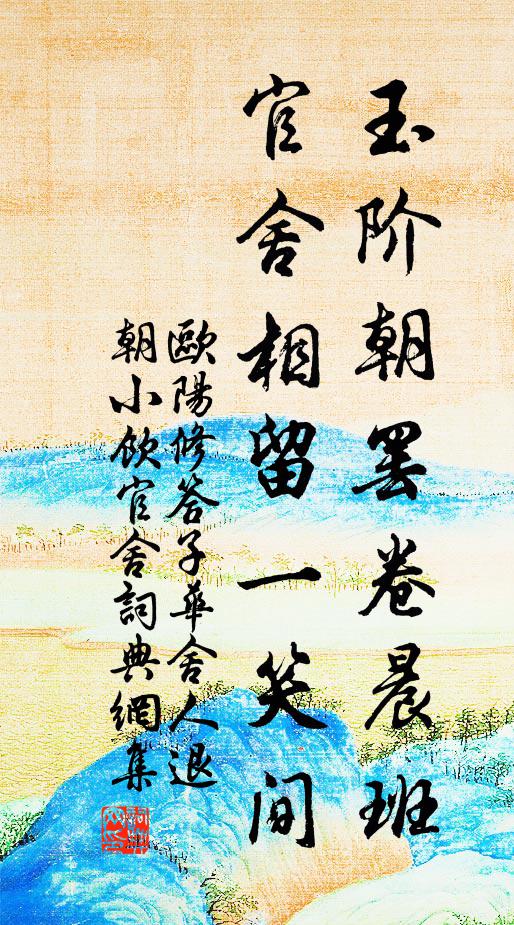 玉阶朝罢卷晨班
官舍相留一笑间
歐陽修答子華舍人退
朝小飲官舍詞典網集